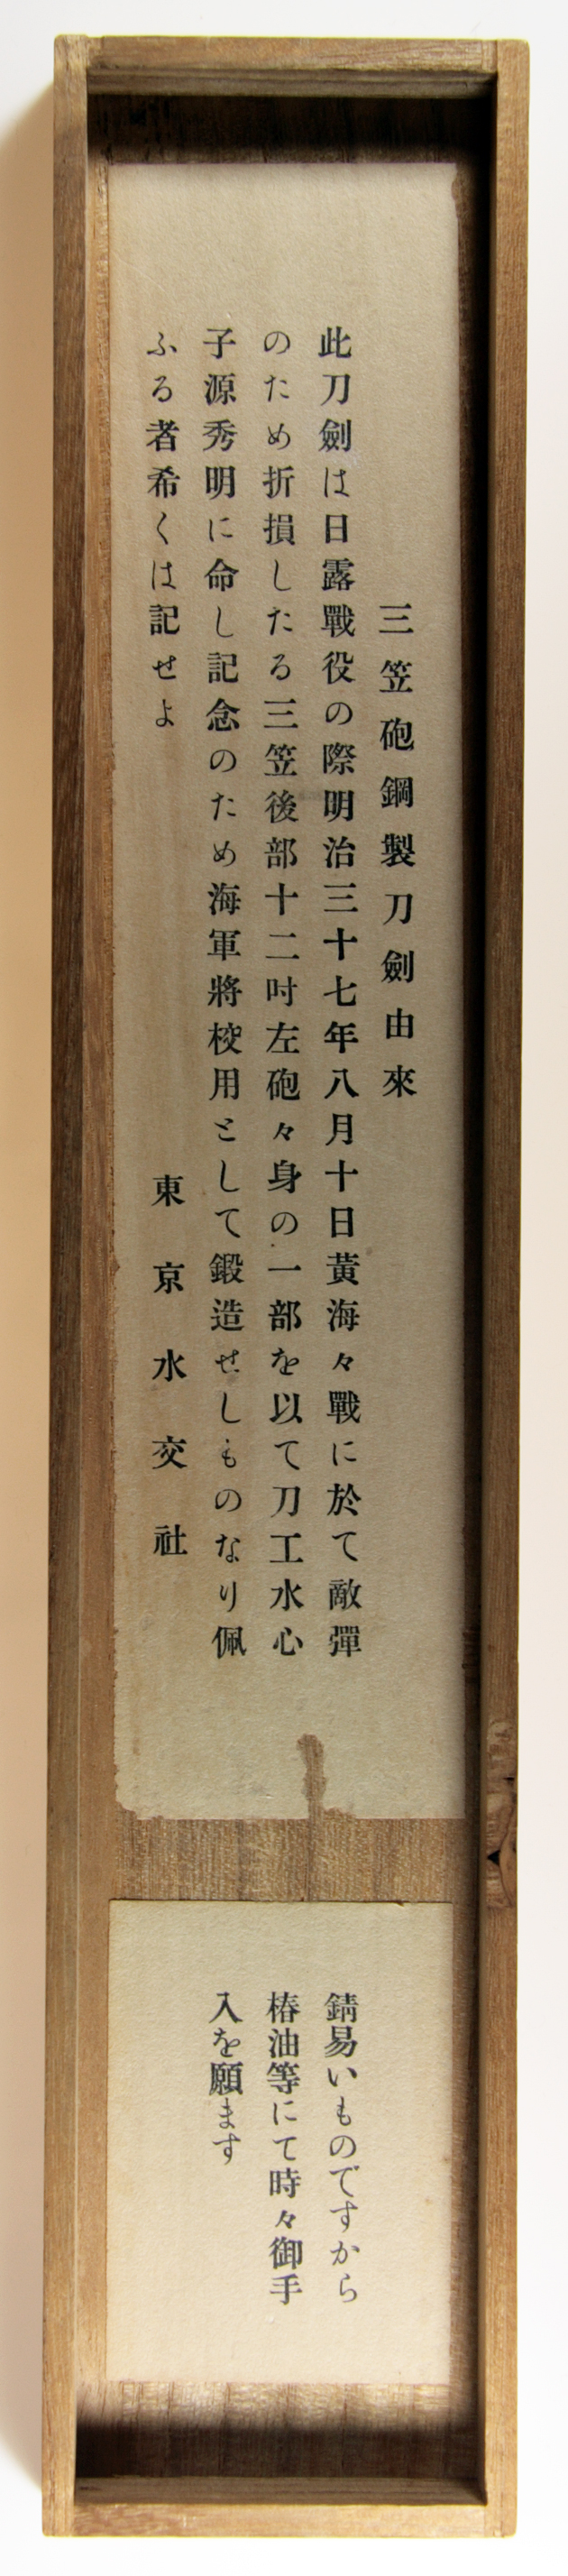 三笠砲鋼製刀劍由來
此刀劍は日露戰役の際明治三十七年八月十日黃海々戰に於て敵彈
のため折損したる三笠後部十二吋左砲々身の一部を以て刀工水心
子源秀明に命し記念のため海軍將校用として鍛造せしものなり佩
ふる者希くは記せよ
東京水交社
錆易いものですから
椿油等にて時々御手
入を願ます